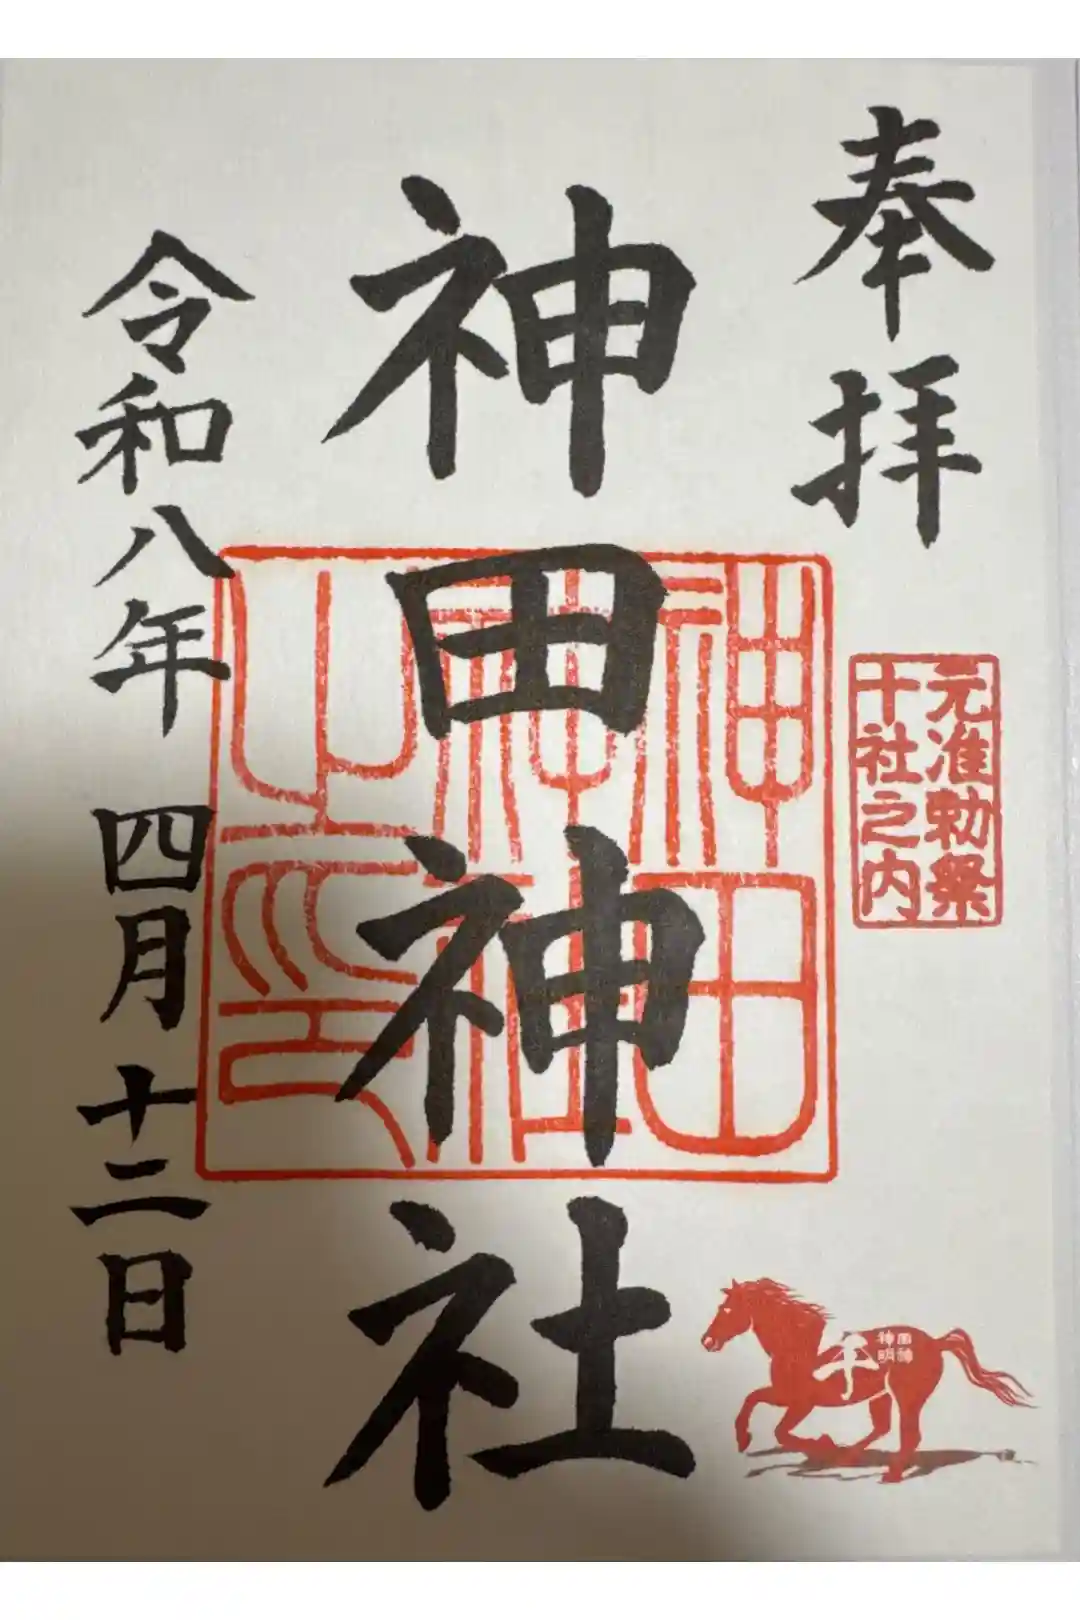 奉拝
元准勅祭
十社之内
神田神社
神田神社之印
午
神田
明神
令和八年 四月十二日